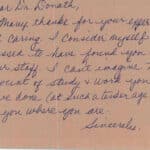 Dear Dr. Donath,
Many thanks for your
caring. I consider myself
to have found you
staff. I can't imagine
of study & work you
have done (at such a tender age
you where you are.
Sincerely,